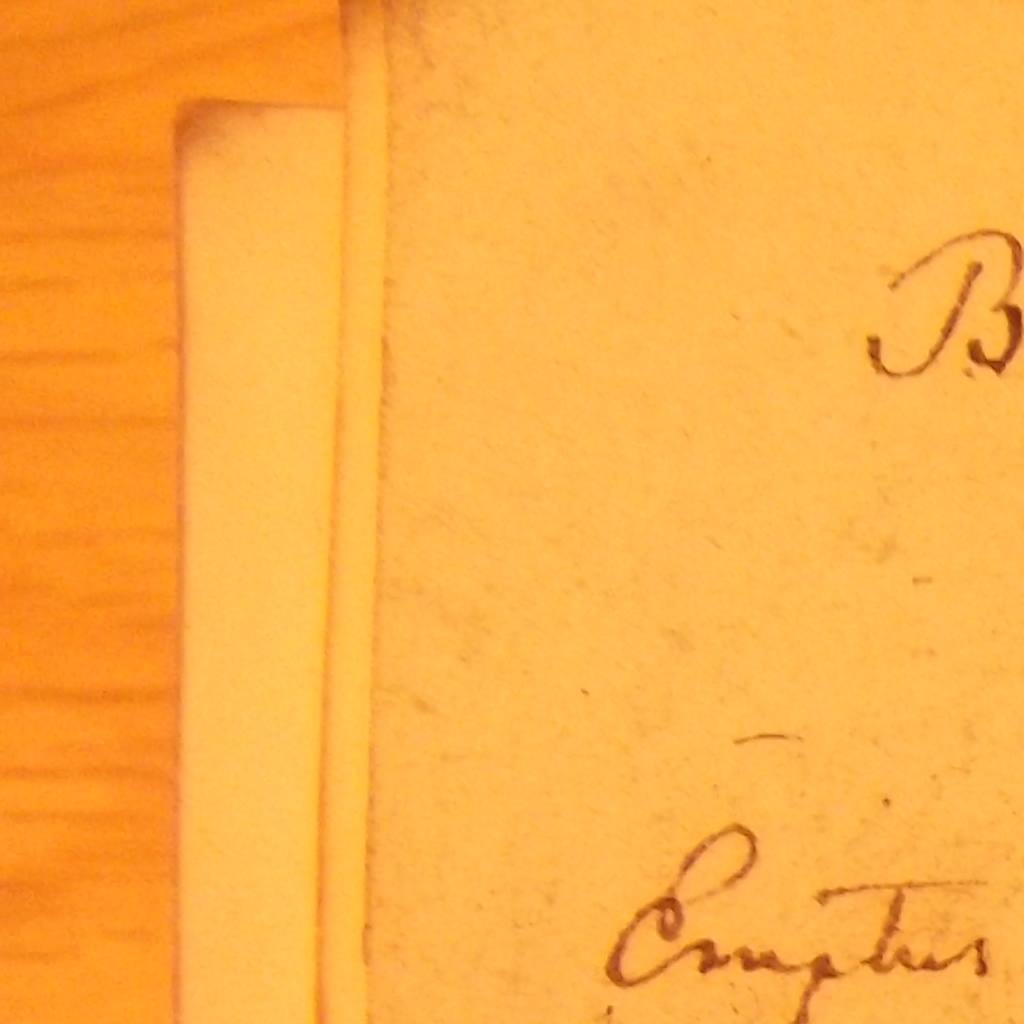 B
Emptus